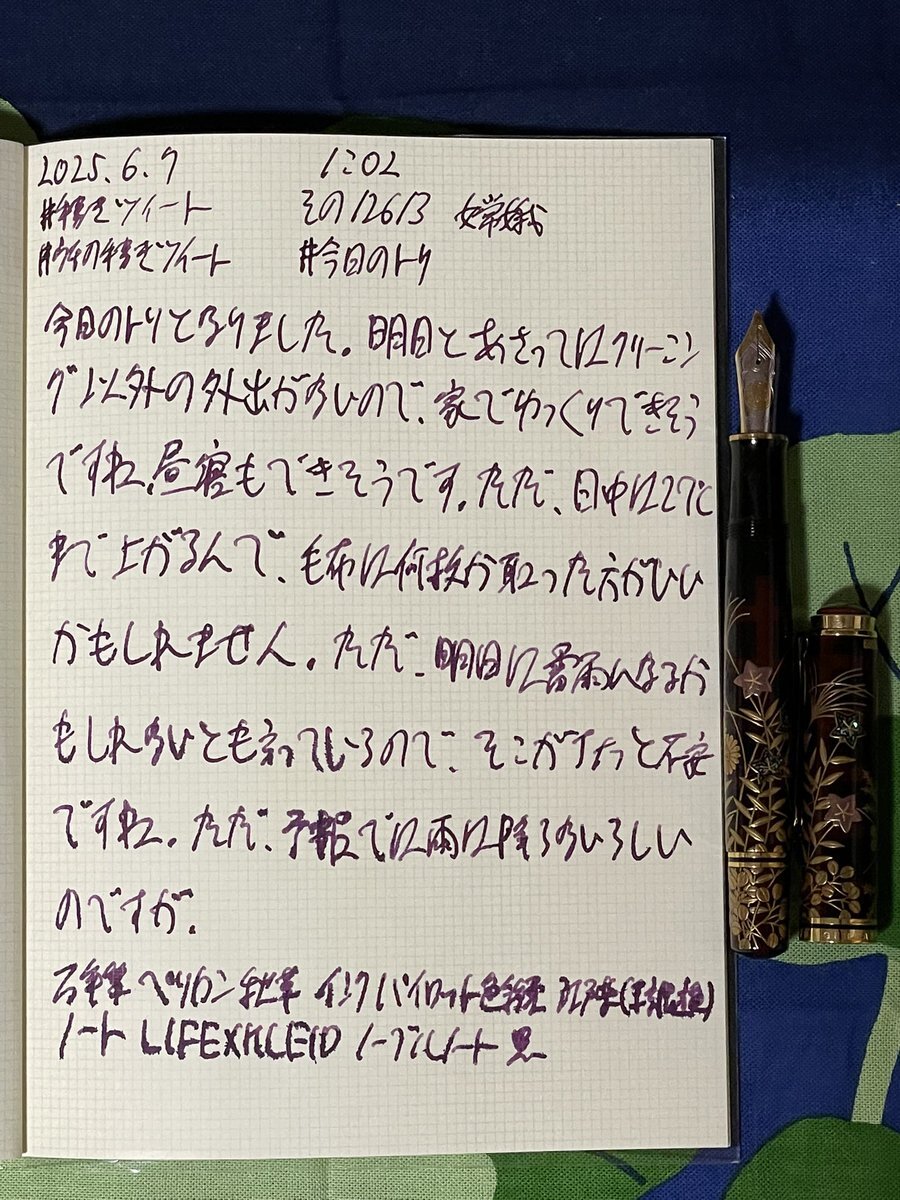 2025.6.7 1:02
#手書きツイート その12613 嫦娥
#今日の手書きツイート #今日のトリ
今日のトリとなりました。明日とあさってはクリーニン
グ以外の外出がないので、家でゆっくりできそう
ですね。昼寝もできそうです。ただ、日中は27℃
まで上がるんで、毛布は何枚か取った方がいい
かもしれません。ただ、明日は雷雨になるか
もしれないとも言っているので、そこがちょっと不安
ですね。ただ、予報では雨は降らないらしい
のですが。
万年筆 ペリカン 秋草 インク パイロット色彩雫
ノート LIFE×KLEID ノーブルノート 黒